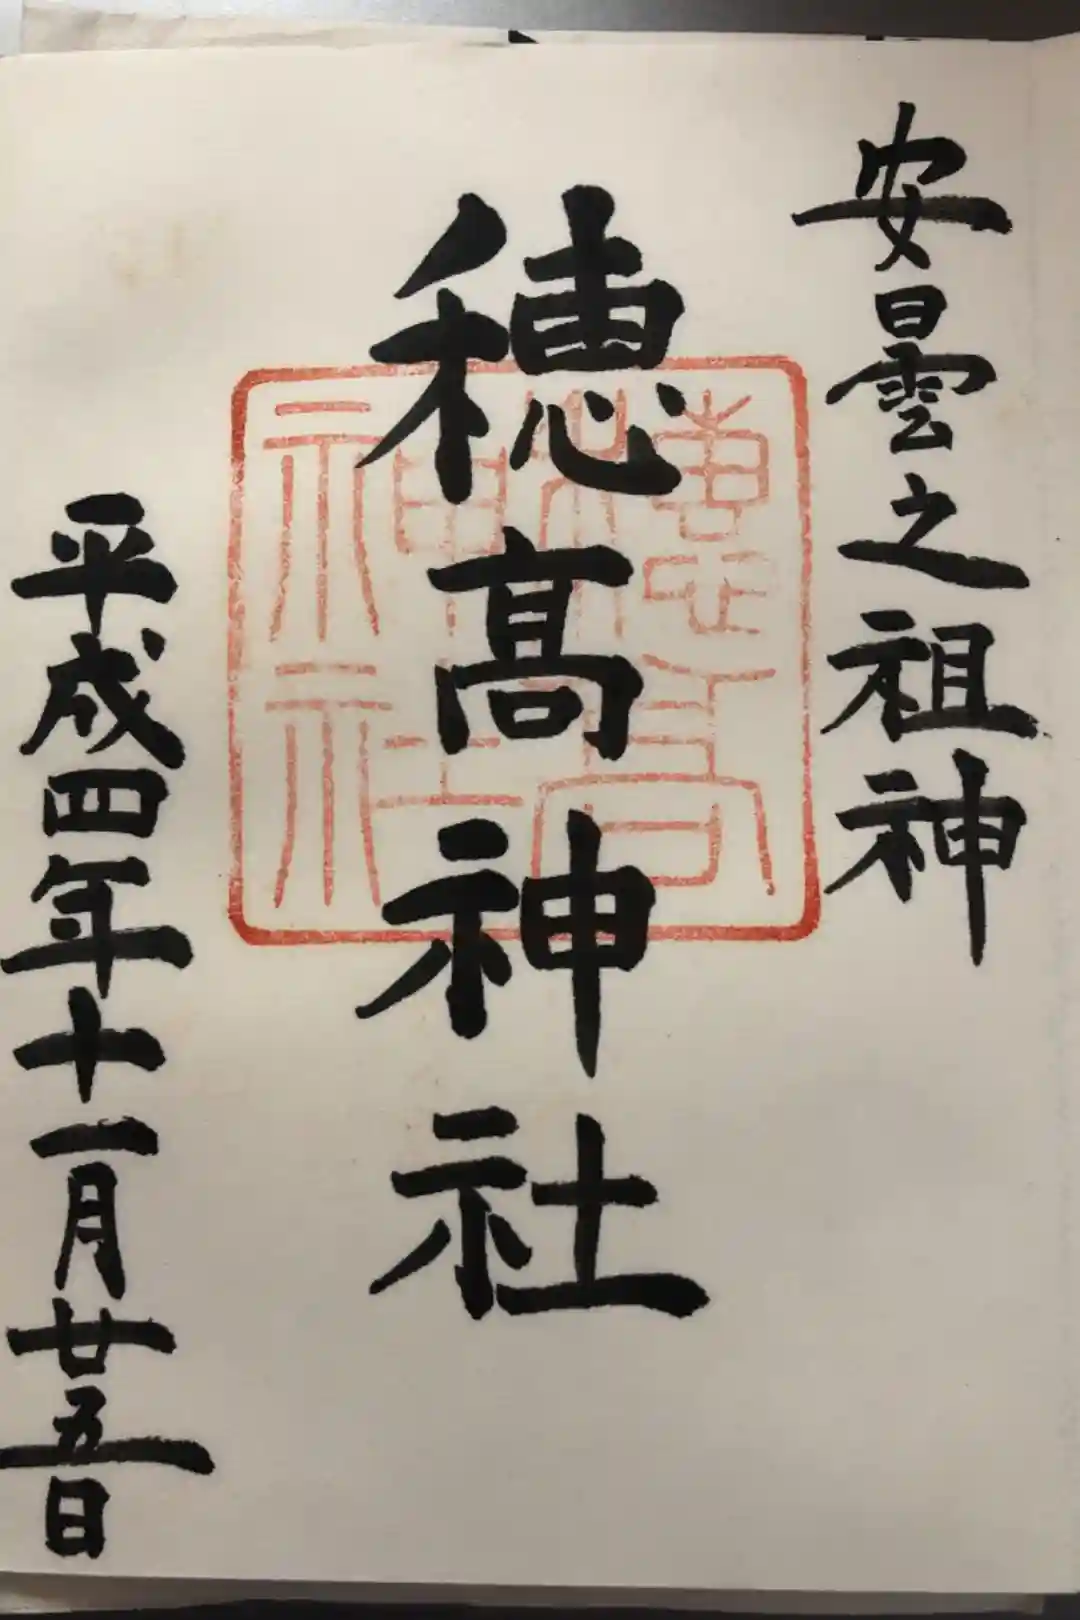 安曇之祖神
穂髙神社
穂髙
神社
平成四年十一月廿五日